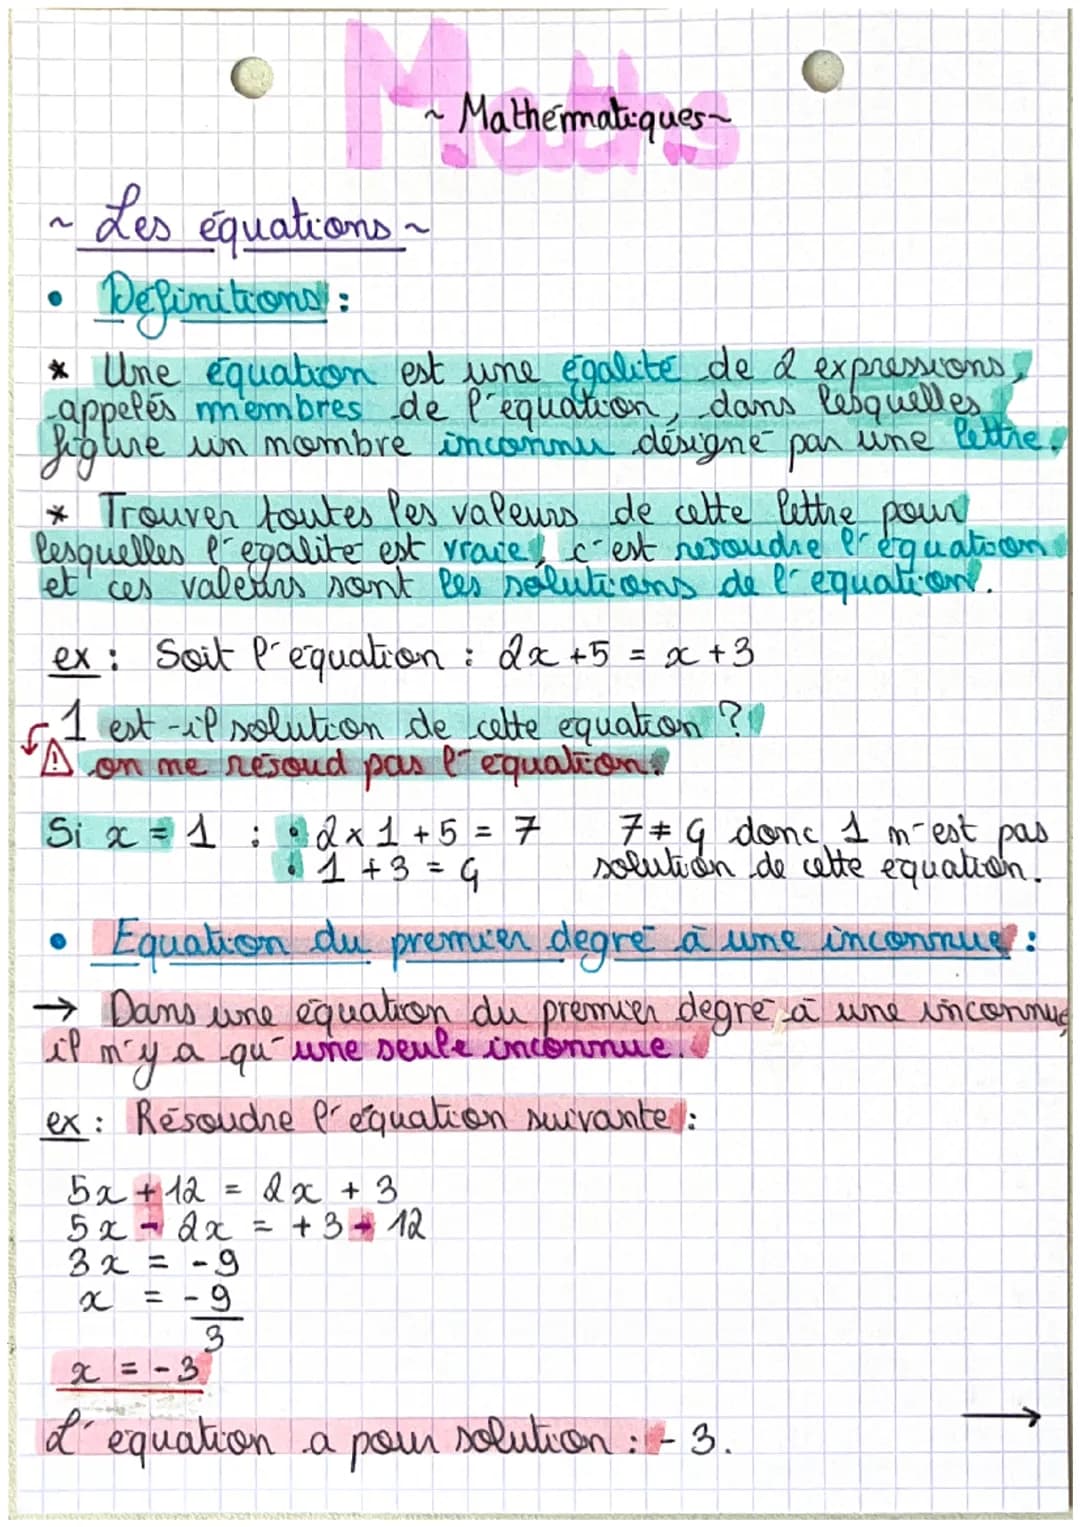 Maths
~ Mathématiques ~
~ Les équations ~
• Définitions :
* Une équation est une égalité de 2 expressions,
appelés membres de l'équation, dans lesquelles
figure un nombre inconnu désigné par une lettre.
* Trouver toutes les valeurs de cette lettre pour
lesquelles l'égalité est vraie, c'est résoudre l'équation
et ces valeurs sont les solutions de l'équation.
ex : Soit l'équation : 2x + 5 = x + 3
1 est-il solution de cette équation ?
⚠ on ne résoud pas l'équation.
Si x = 1 : • 2 x 1 + 5 = 7 7 ≠ 4 donc 1 n'est pas
• 1 + 3 = 4 solution de cette équation.
• Equation du premier degré à une inconnue :
→ Dans une équation du premier degré à une inconnue
il n'y a qu'une seule inconnue.
ex : Résoudre l'équation suivante :
5x + 12 = 2x + 3
5x - 2x = + 3 - 12
3x = - 9
x = - 9
3
x = - 3
L'équation a pour solution : - 3.
→